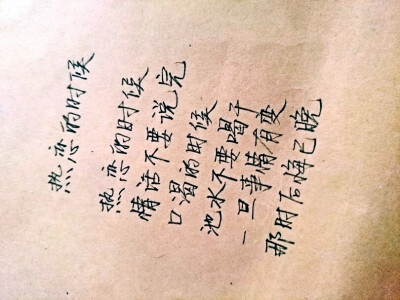 热恋的时候
热恋的时候
情话不要说完
口渴的时候
池水不要喝干
一旦事情有变
那时后悔已晚